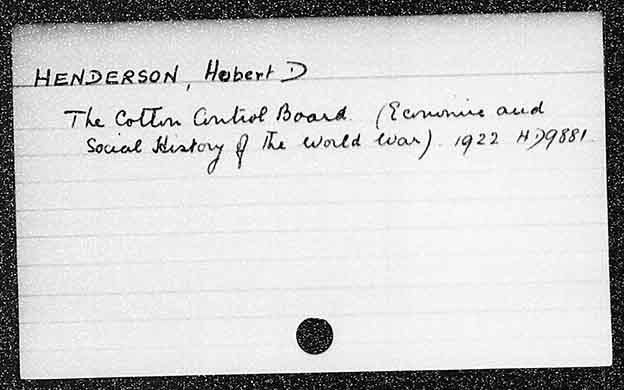 HENDERSON, Hubert D
The Cotton Control Board. (Economic and
Social History of the World War). 1922 HD9881